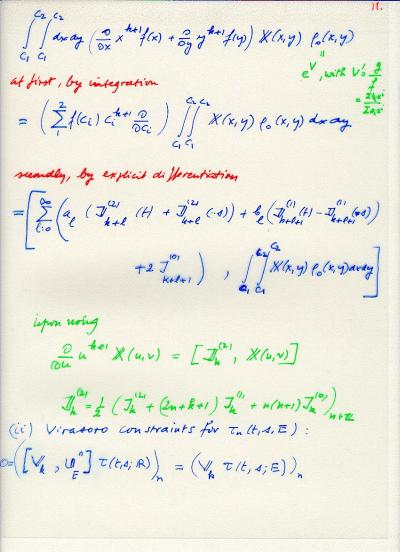 11.
∫_{C_1}^{C_2} ∫_{C_1}^{C_2} dx dy ( ∂/∂x x^{k+1} f(x) + ∂/∂y y^{k+1} f(y) ) 𝕏(x,y) ρ_0(x,y)
e^V, with V' = g/f
at first, by integration
= ( Σ_1^2 f(c_i) c_i^{k+1} ∂/∂c_i ) ∫∫_{C_1 C_1}^{C_2 C_2} 𝕏(x,y) ρ_0(x,y) dx dy
secondly, by explicit differentiation
= [ Σ_{l=0}^∞ ( a_l ( 𝕁^{(2)}_{k+l} (t) + 𝕁^{(2)}_{k+l} (-s) ) + b_l ( 𝕁^{(1)}_{k+l+1} (t) - 𝕁^{(1)}_{k+l+1} (-s) )
+ 2 J^{(0)}_{k+l+1} ) , ∫∫_{C_1 C_1}^{C_2 C_2} 𝕏(x,y) ρ_0(x,y) dx dy ]
upon using
∂/∂u u^{k+1} 𝕏(u,v) = [ 𝕁_k^{(2)} , 𝕏(u,v) ]
𝕁_k^{(2)} = 1/2 ( J_k^{(2)} + (2n+k+1) J_k^{(1)} + n(n+1) J_k^{(0)} )_{n∈ℤ}
(ii) Virasoro constraints for τ_n(t,s,E) :
0 = ( [ 𝕍_k , 𝕌_E^n ] τ(t,s;ℝ) )_n = ( 𝕍_k τ(t,s;E) )_n